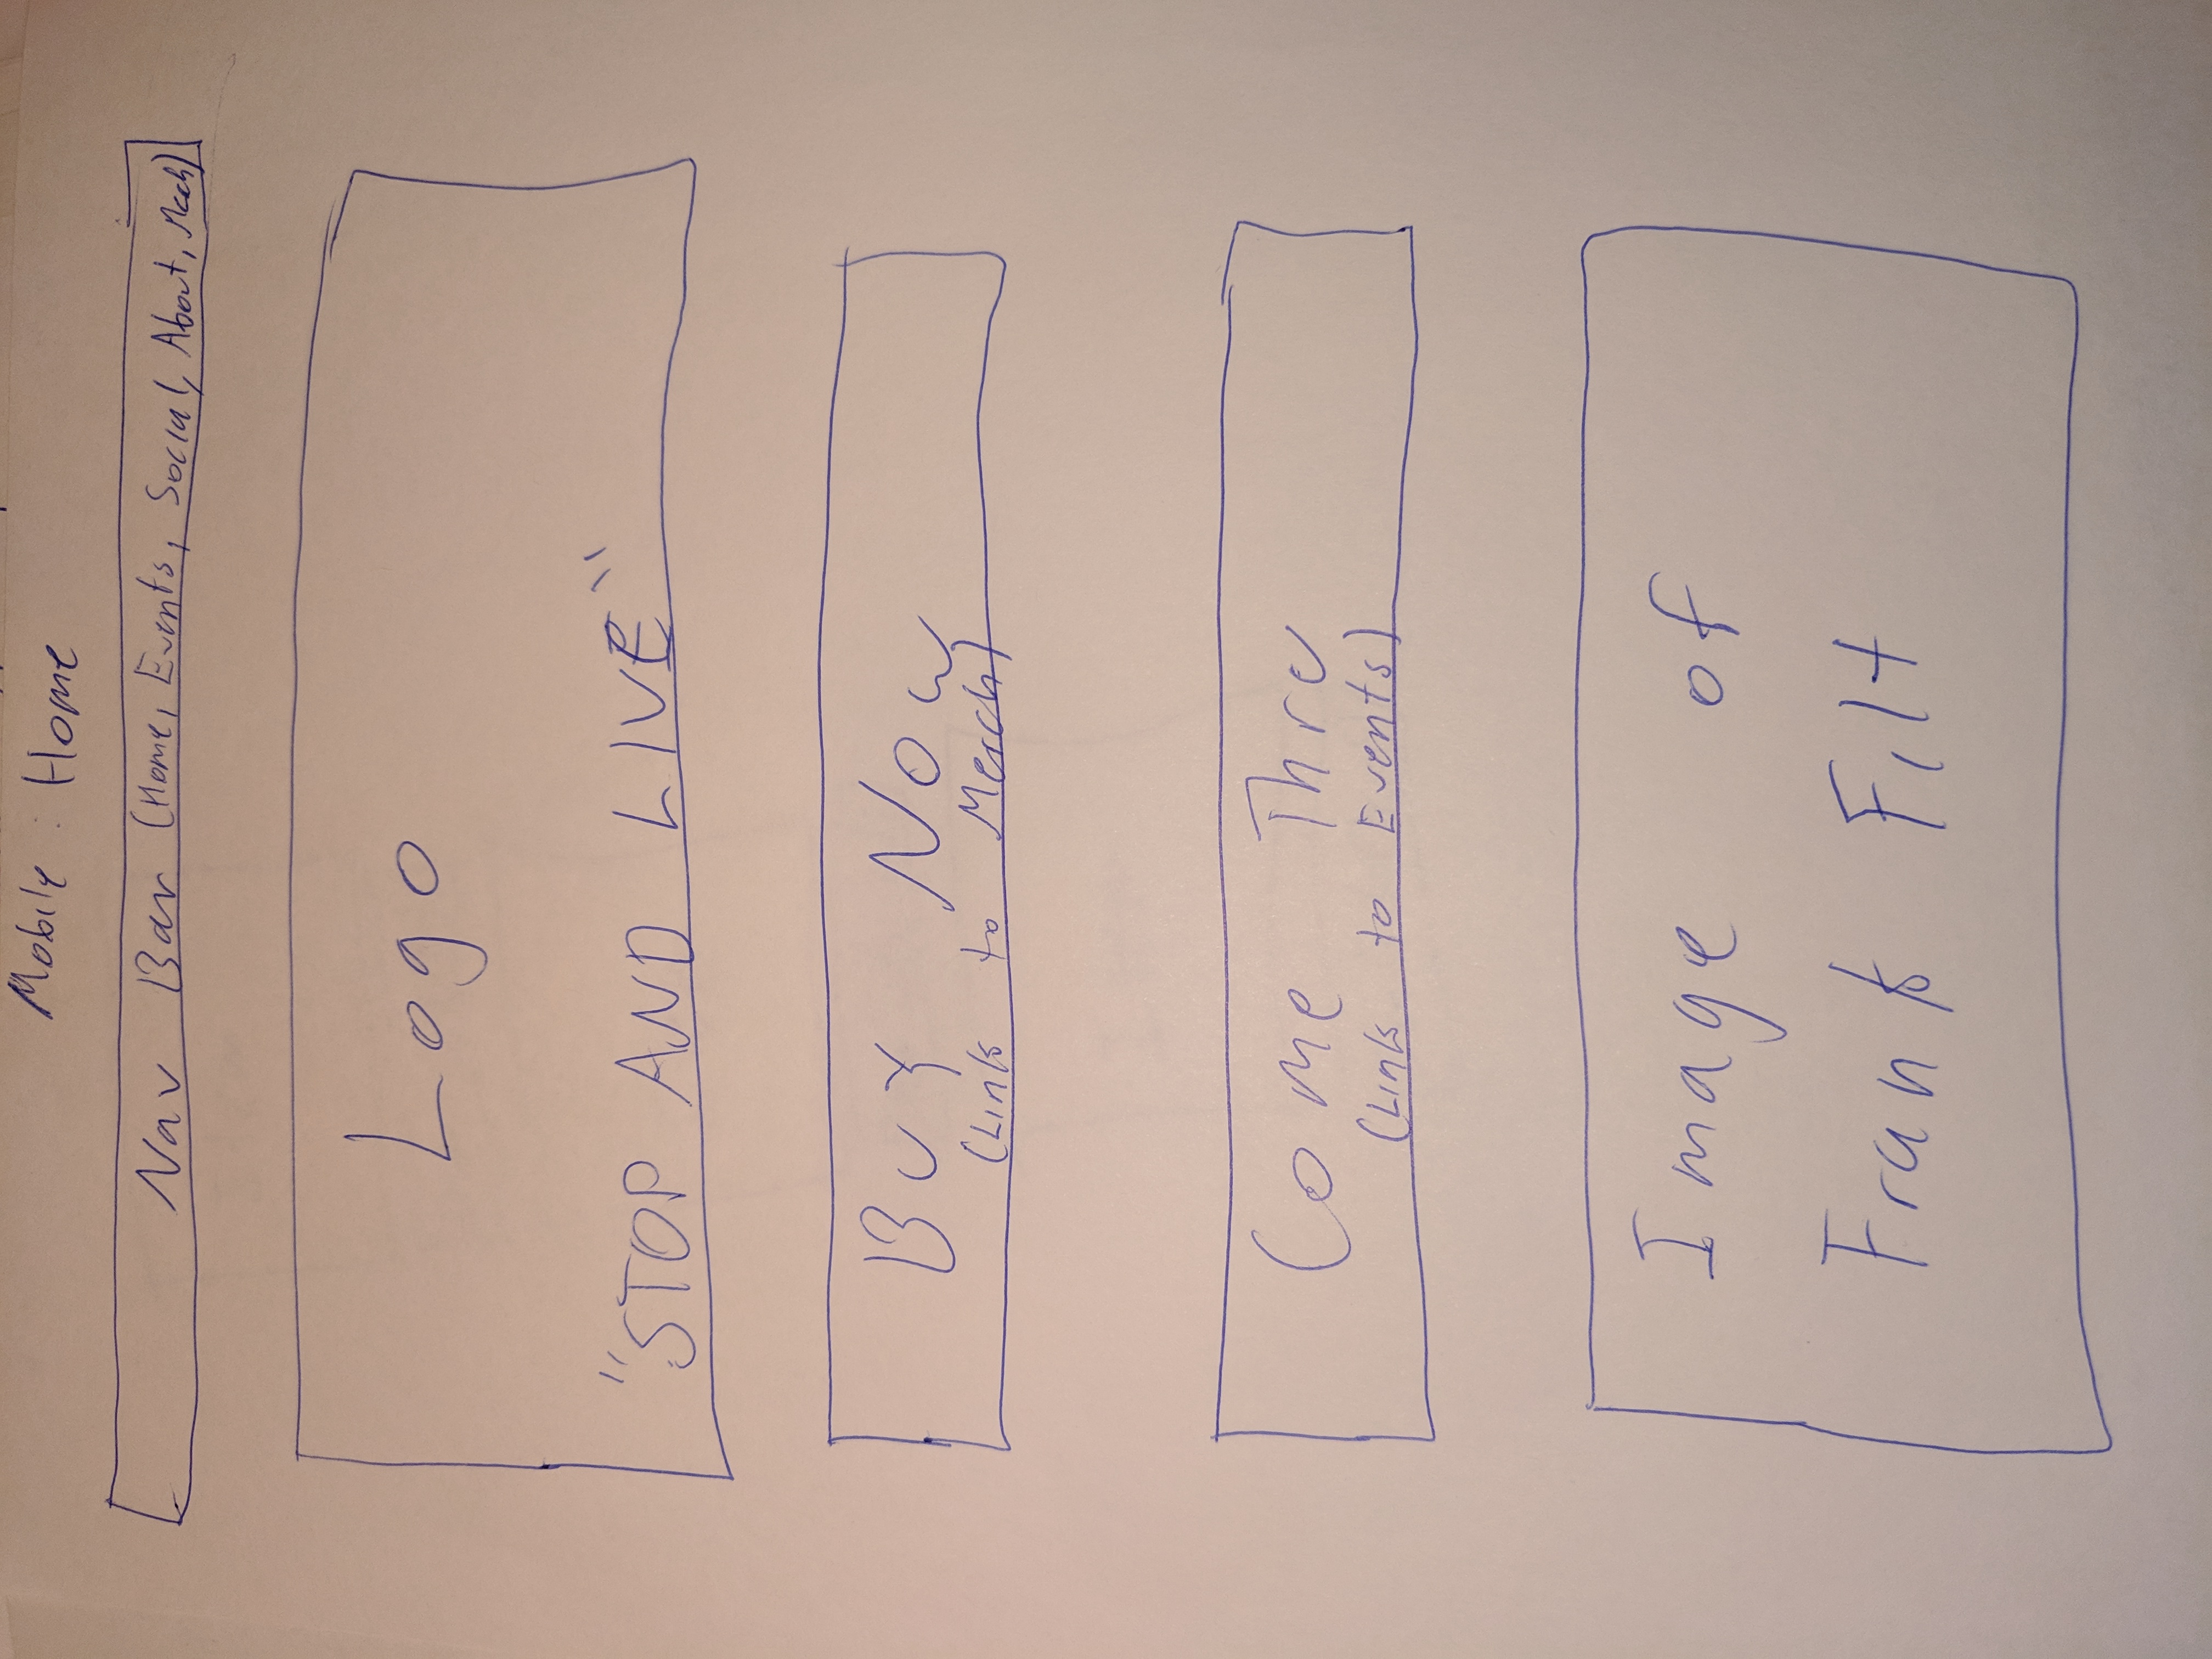 Mobile : Home
Nav Bar (Home, Events, Social, About, Merch)
Logo
"STOP AND LIVE"
Buy Now
(Links to Merch)
Come Thru
(Links to Events)
Image of
Frank Filt